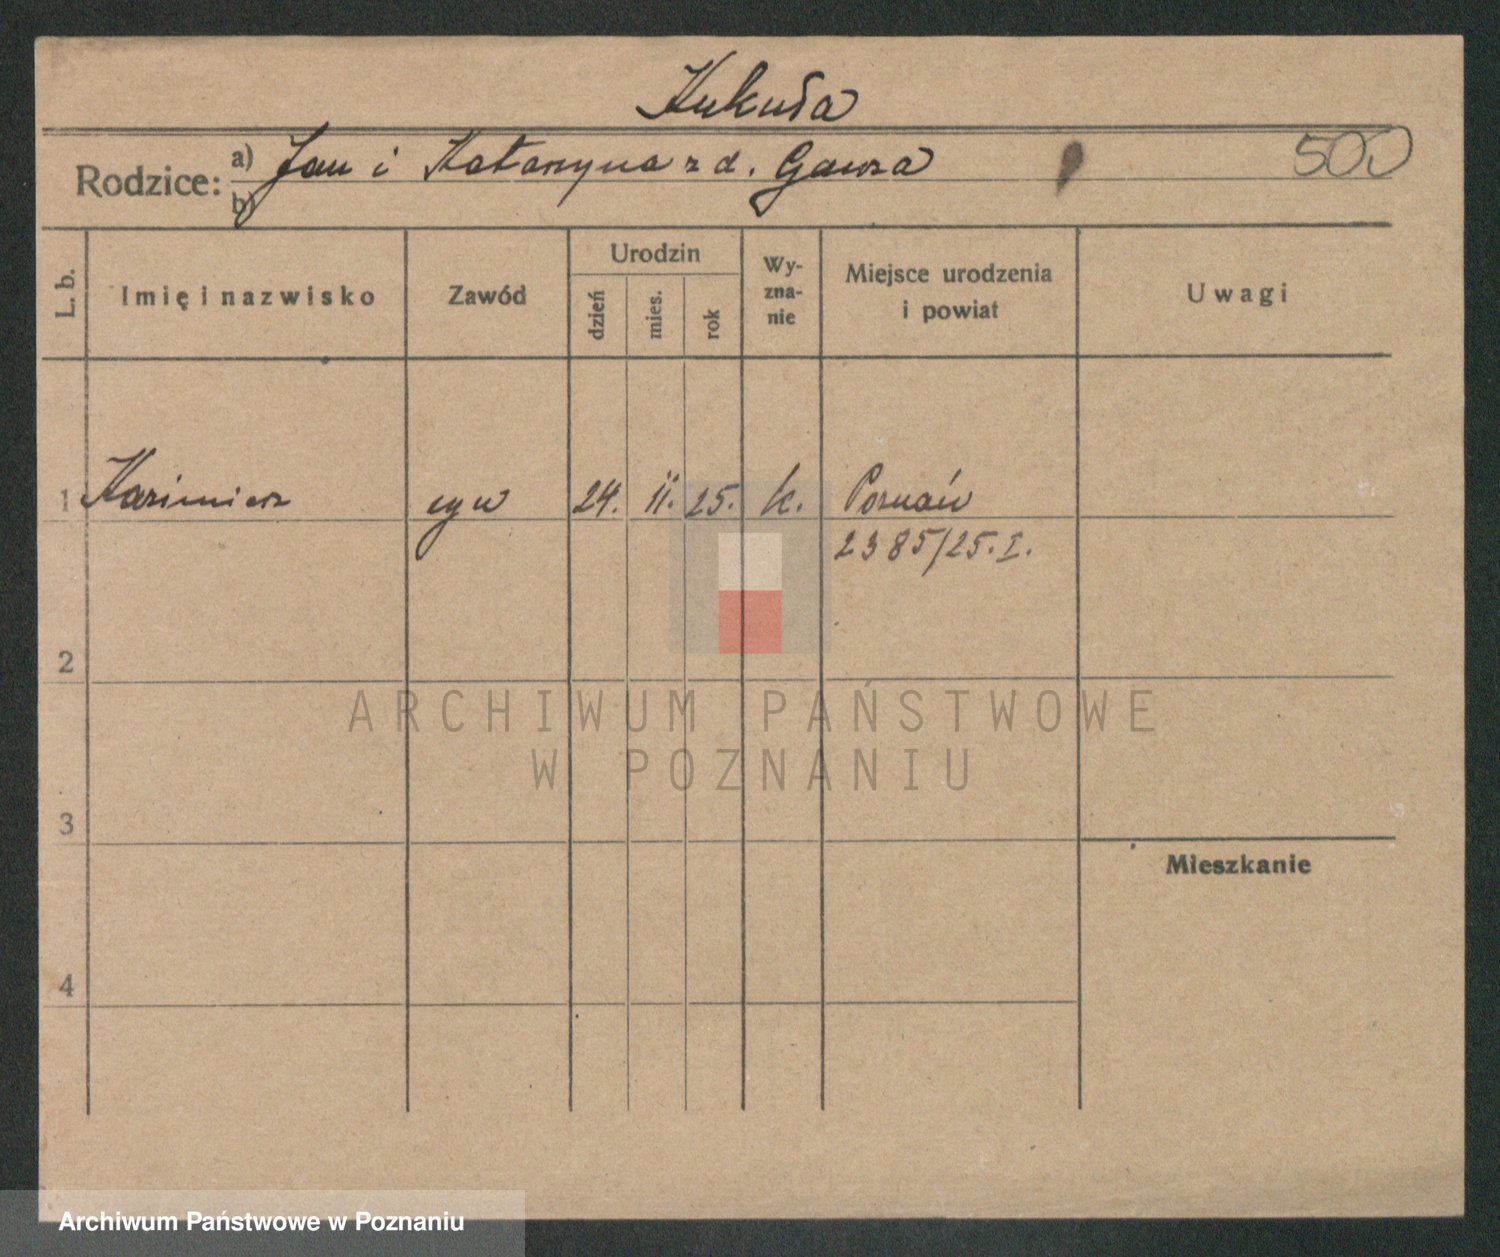 Kukuła
Rodzice: a) Jan i Katarzyna z d. Gawza
b)
500
L. b.
Imię i nazwisko
Zawód
Urodzin
dzień
mies.
rok
Wy-
zna-
nie
Miejsce urodzenia
i powiat
Uwagi
1 Kazimierz 24. II. 25. k. Poznań
2385/25. I.
2
ARCHIWUM PAŃSTWOWE
W POZNANIU
3
Mieszkanie
4
Archiwum Państwowe w Poznaniu